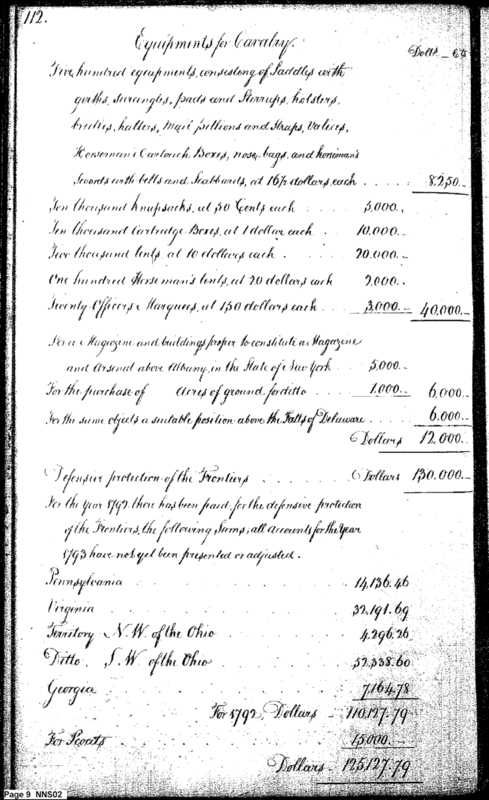 112.
Equipments for Cavalry.
Dolls — Cts
Five hundred equipments, consisting of Saddles with
girths, surcingles, pads and Stirrups, holsters,
bridles, halters, mail pillions and Straps, Valices,
Horseman's Cartouch Boxes, nose bags, and horseman's
Swords with belts and Scabbards, at 16½ dollars each . . . . 8250 —
Ten thousand Knapsacks, at 50 Cents each . . . 5,000..
Ten thousand Cartridge Boxes, at 1 dollar each . . 10,000.-
Two thousand tents at 10 dollars each . . . 20,000 —
One hundred Horseman's tents, at 20 dollars each 2,000.
Twenty Officers Marquees, at 150 dollars each . . . 3,000.— 40,000.—
For a Magazine and buildings proper to constitute a Magazine
and Arsenal above Albany, in the State of New York . . 5,000.—
For the purchase of Acres of ground for ditto . . 1,000.— 6,000
For the same objects a suitable position above the Falls of Delaware . . . . 6,000 —
Dollars 12,000..
Defensive protection of the Frontiers . . . . Dollars 130,000.—
For the Year 1792 there has been paid, for the defensive protection
of the Frontiers, the following Sums; all accounts for the Year
1793 have not yet been presented or adjusted.
Pennsylvania . . . . 14,136.46
Virginia . . . . 32,191.69
Territory N.W. of the Ohio . . . . 4,296.26
Ditto, S.W. of the Ohio . . . . 52,338.60
Georgia . . . . 7,164.78
For 1792, Dollars — 110,127.79
For Scouts . . . . 15,000.—
Dollars — 125,127.79
Page 9 NNS02